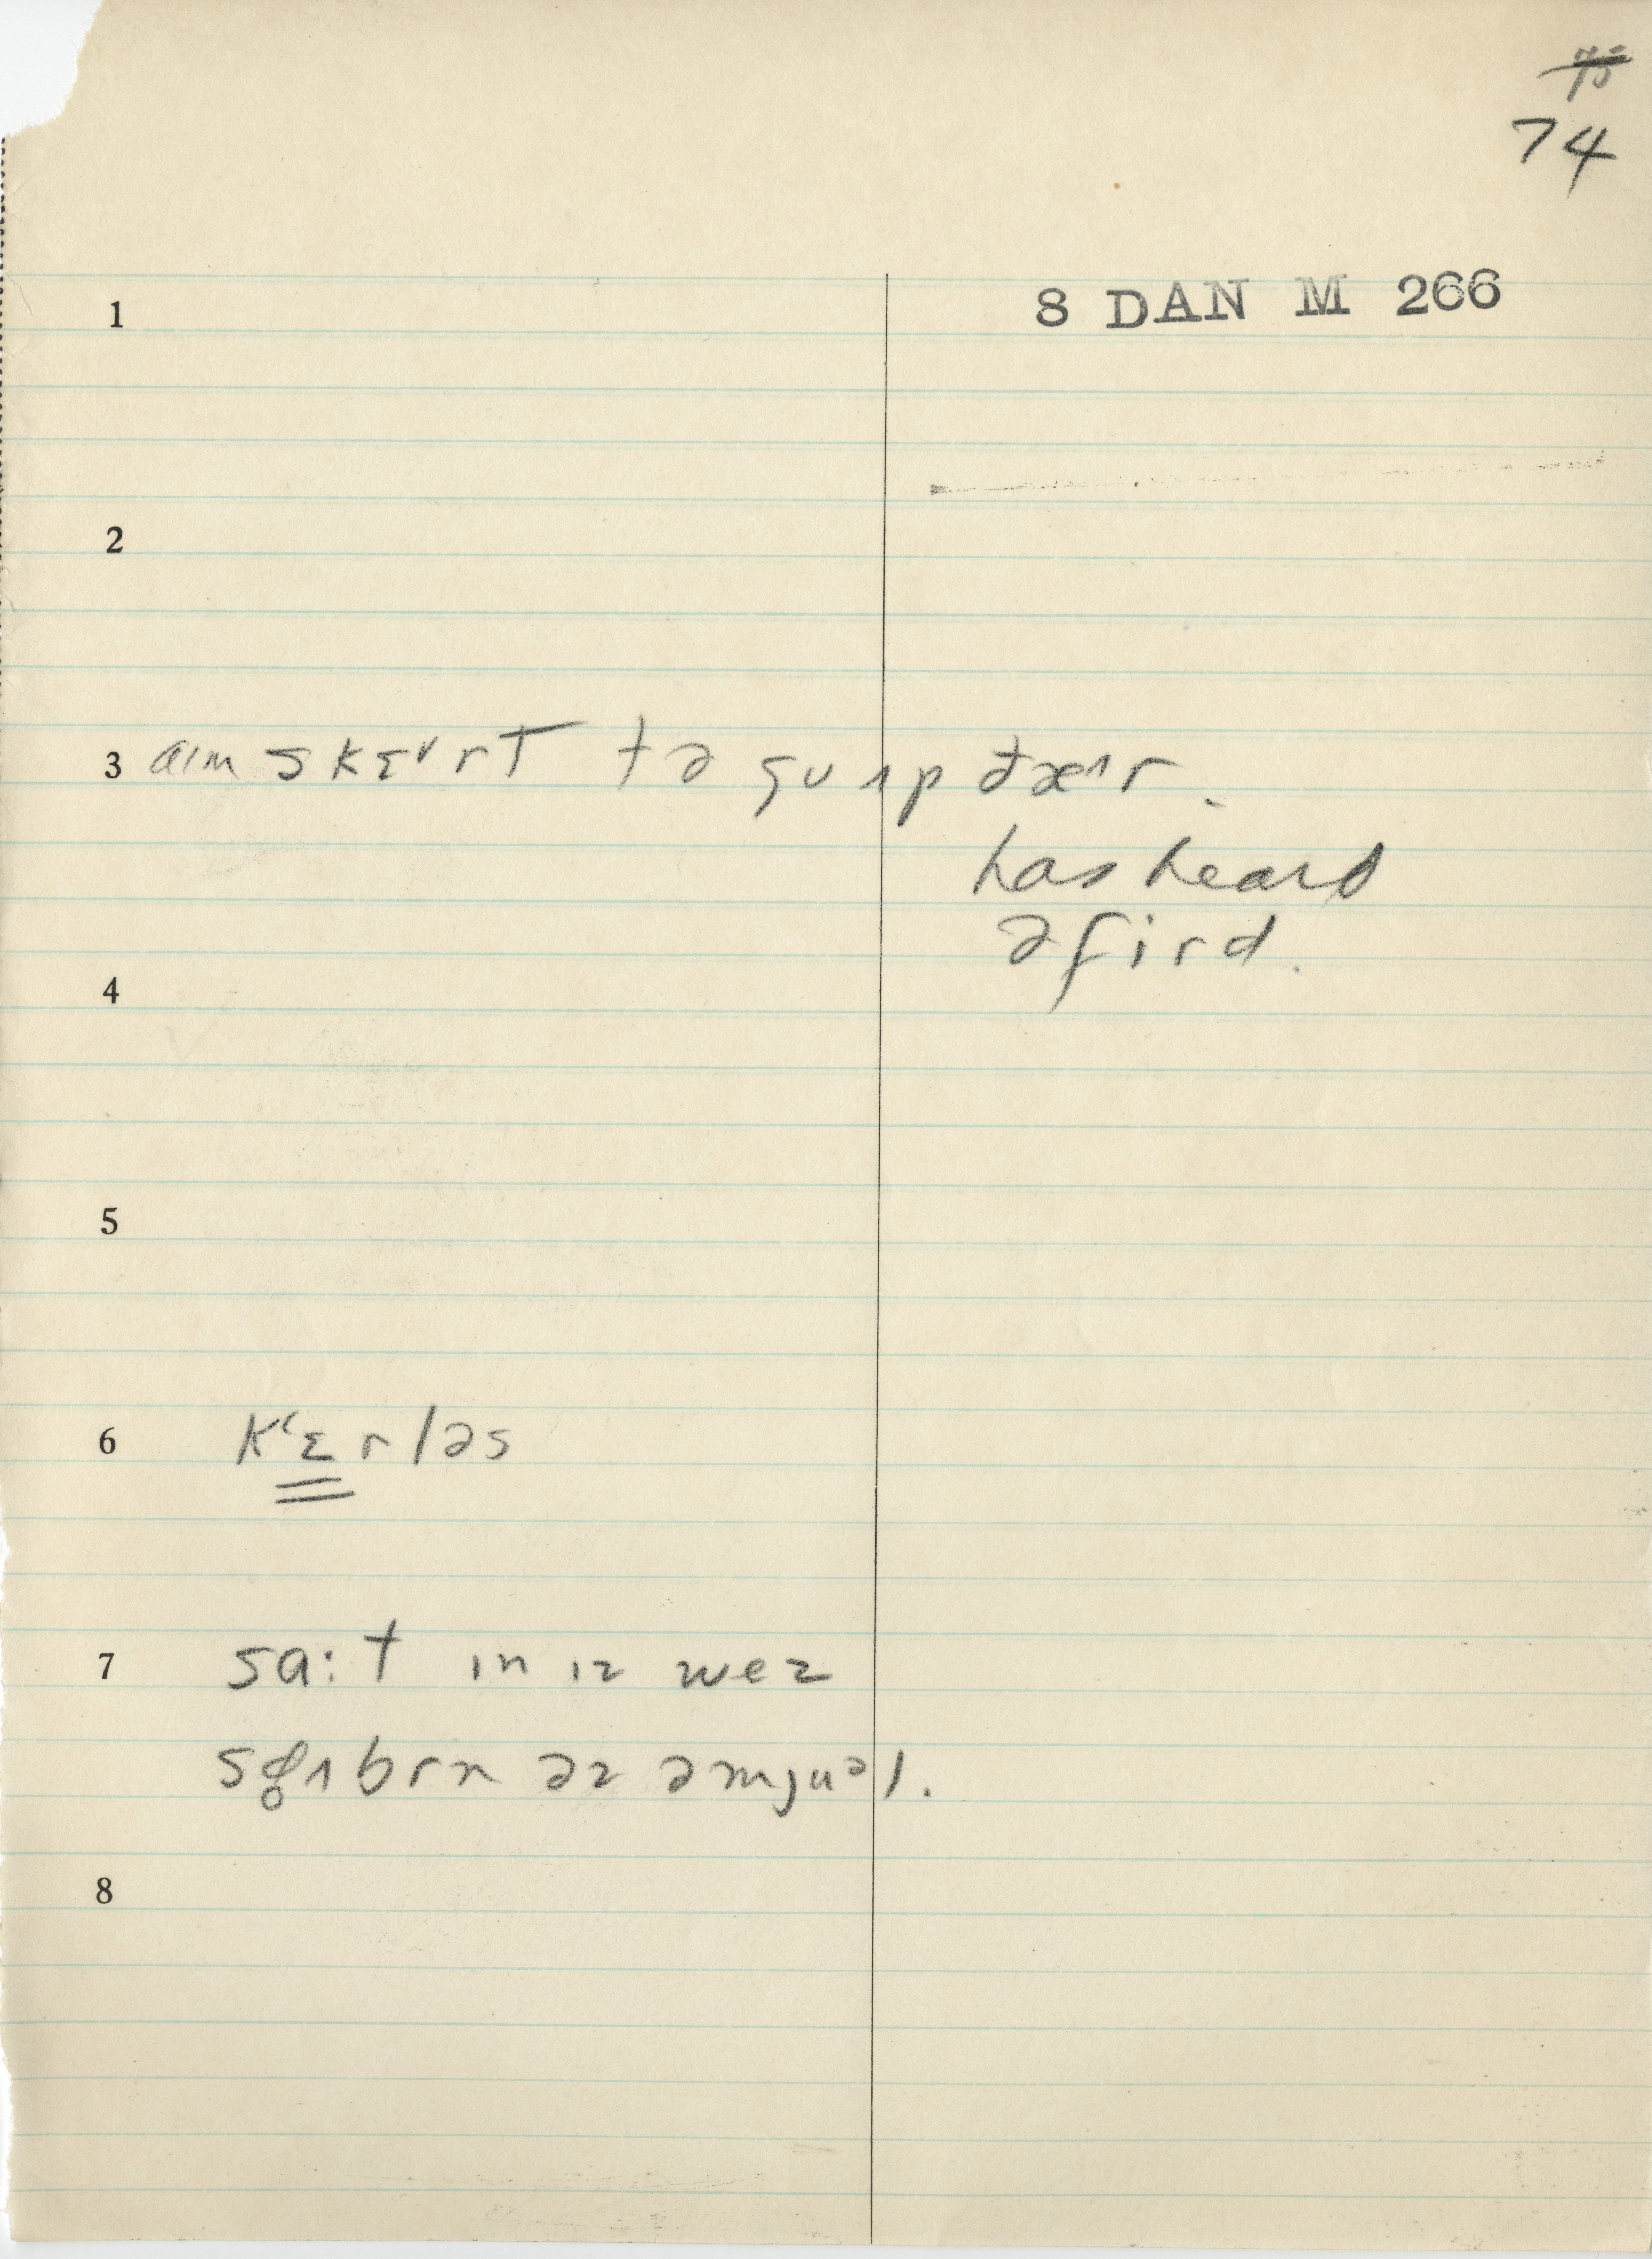 ~~75~~
74
1
8 DAN M 266
2
3 aɪm skɛ˅rt tə gʊ ɪp ðæ˄r.
has heard
əfird.
4
5
6 k‘ɛrləs
7 sa:t ɪn ɪz wez
əz əmjuəl.
8